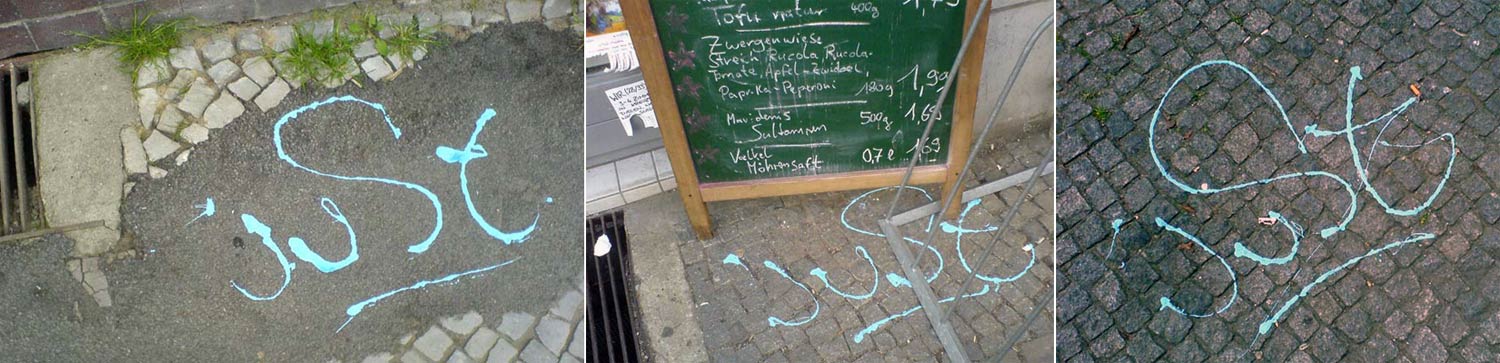 just
Tofu natur 400g 1,75
Zwergenwiese
Streich Rucola, Rucola-
Tomate, Apfel-Zwiebel,
Paprika-Peperoni 180g 1,99
Mavidenis 500g 1,65
Sultaninen
Voelkel 0,7l 1,69
Möhrensaft
just
just